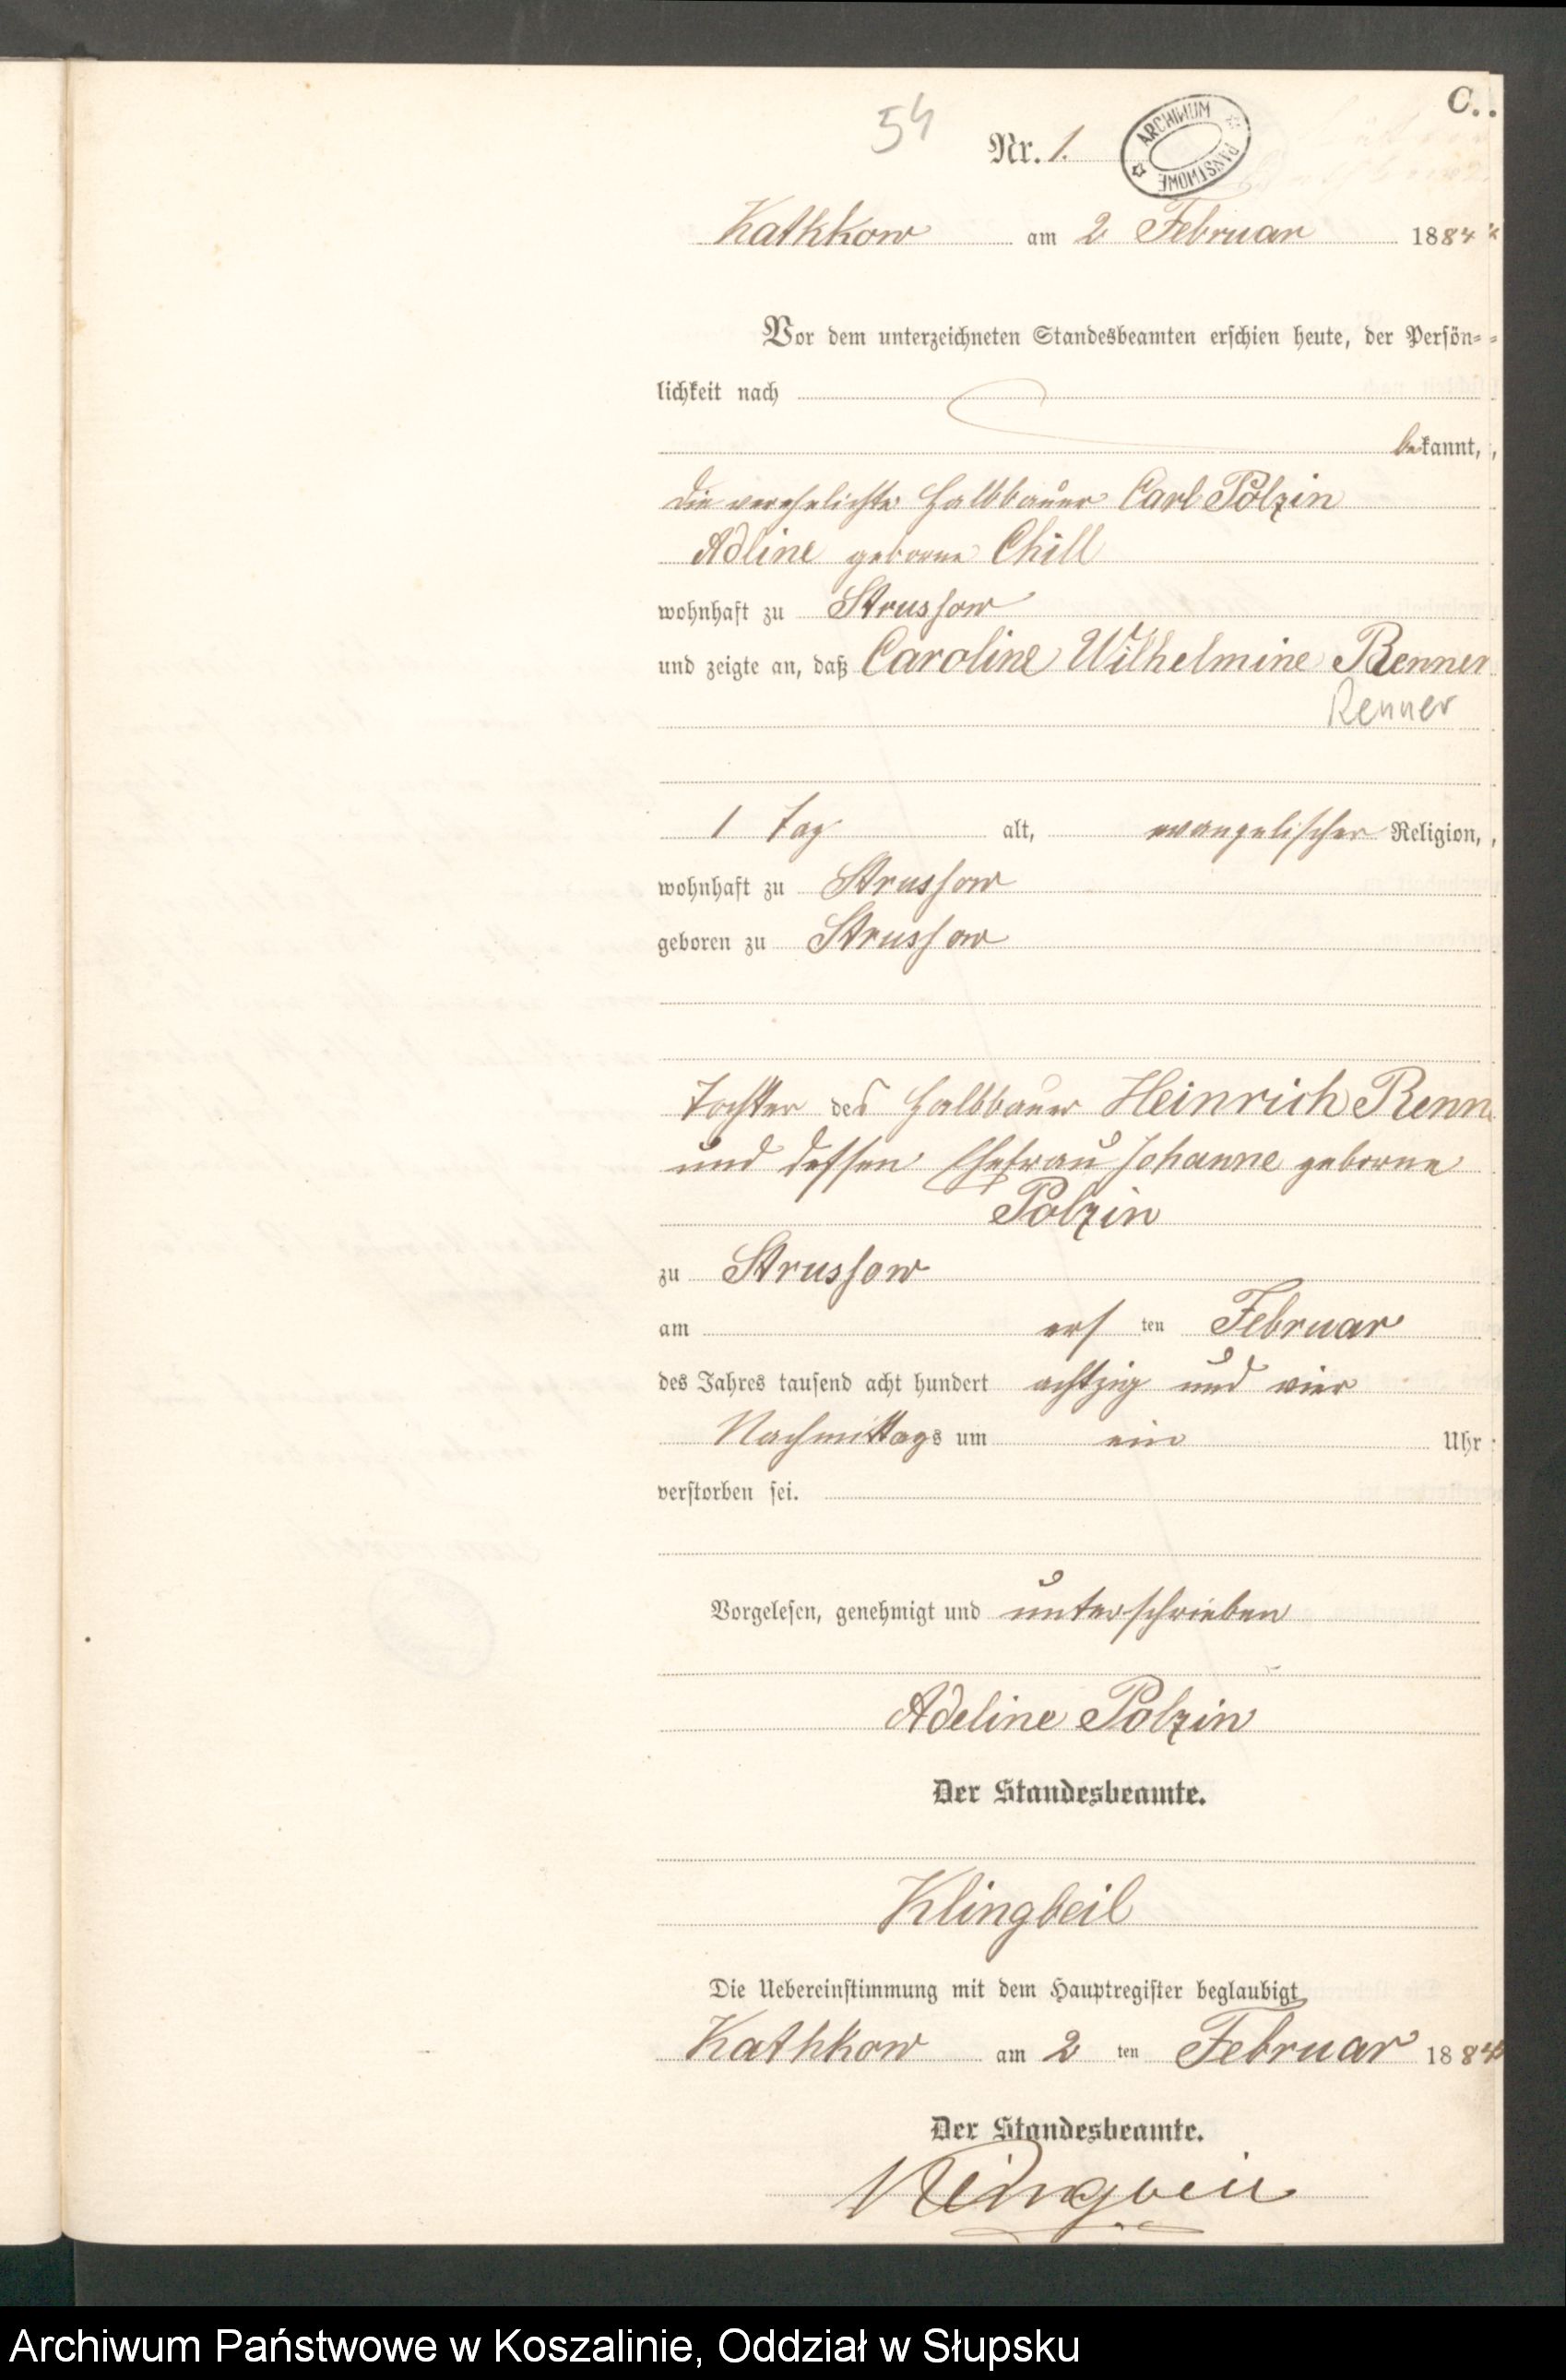 C.
54
Nr. 1.
ARCHIWUM PAŃSTWOWE
Kathkow am 2 Februar 1884
Vor dem unterzeichneten Standesbeamten erschien heute, der Persön-
lichkeit nach
bekannt,
die verehelichte Halbbauer Carl Polzin
Adline geborne Chill
wohnhaft zu Strussow
und zeigte an, daß Caroline Wilhelmine Renner
Renner
1 Tag alt, evangelischer Religion,
wohnhaft zu Strussow
geboren zu Strussow
Tochter des Halbbauer Heinrich Renn
und dessen Ehefrau Johanne geborne
Polzin
zu Strussow
am ersten Februar
des Jahres tausend acht hundert achtzig und vier
Nachmittags um ein Uhr
verstorben sei.
Vorgelesen, genehmigt und unterschrieben
Adeline Polzin
Der Standesbeamte.
Klingbeil
Die Uebereinstimmung mit dem Hauptregister beglaubigt
Kathkow am 2 ten Februar 1884
Der Standesbeamte.
Klingbeil
Archiwum Państwowe w Koszalinie, Oddział w Słupsku